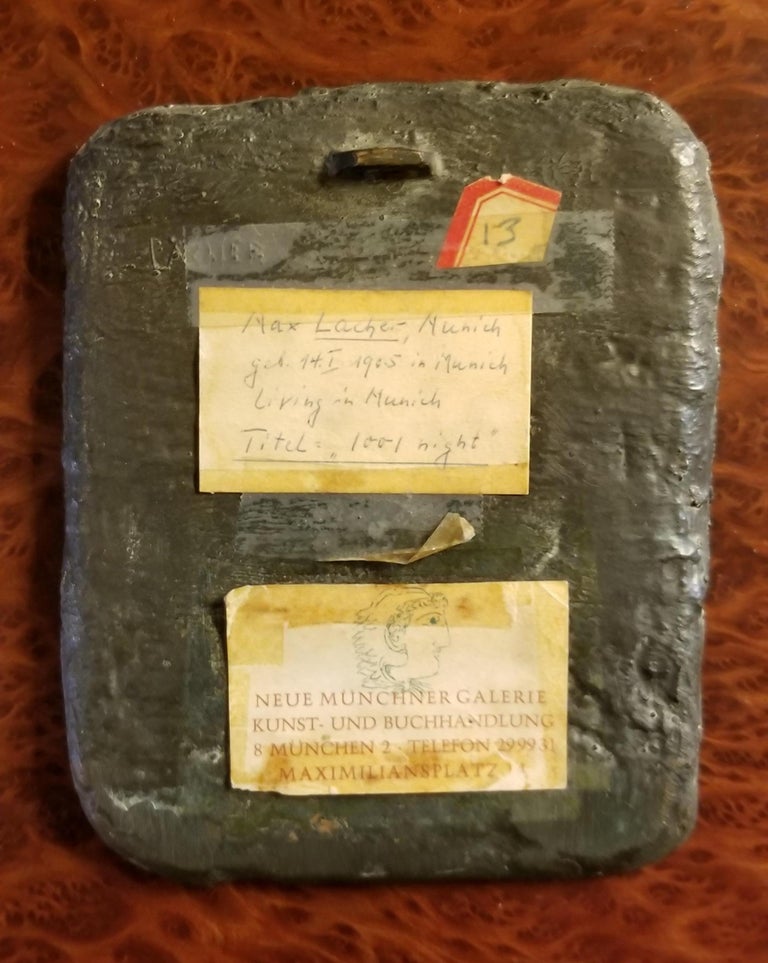 13
Max Lacher, Munich
geb. 14. I. 1905 in Munich
Living in Munich
Titel = „1001 night"
NEUE MÜNCHNER GALERIE
KUNST- UND BUCHHANDLUNG
8 MÜNCHEN 2 · TELEFON 299931
MAXIMILIANSPLATZ